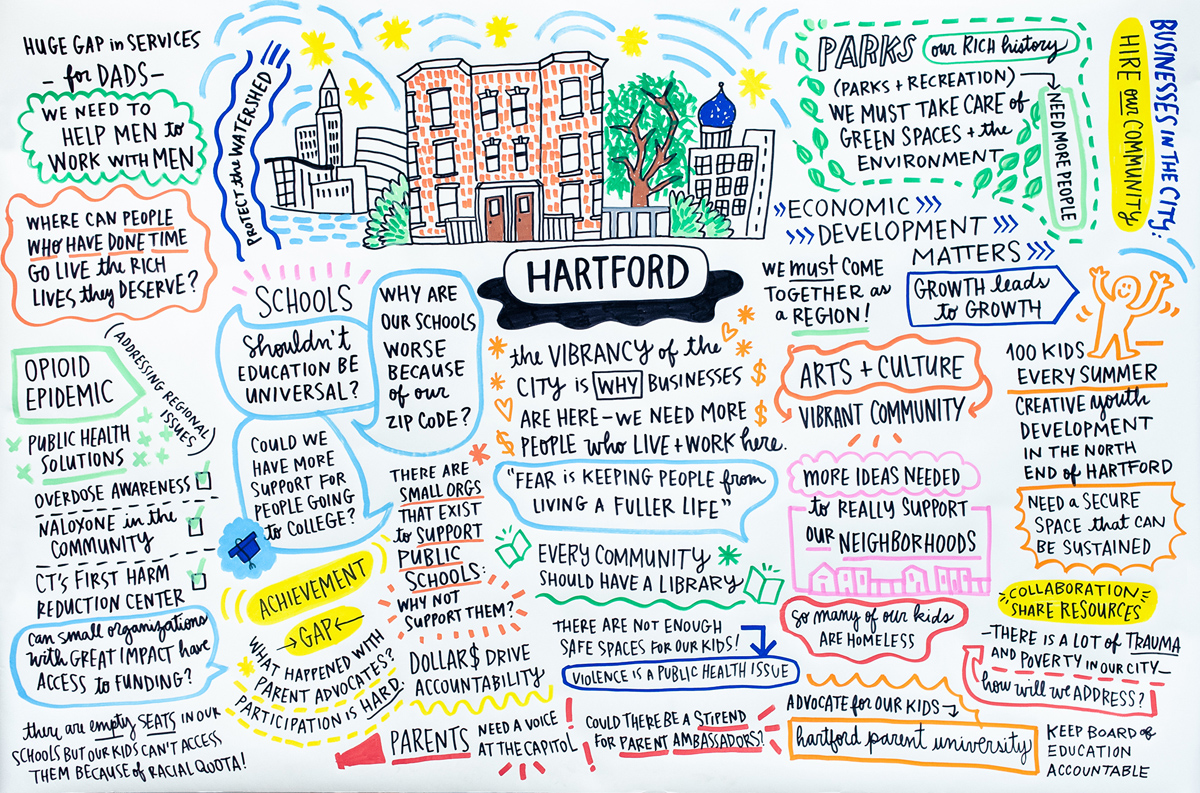 HUGE GAP in SERVICES
- for DADS -
WE NEED TO
HELP MEN to
WORK WITH MEN
WHERE CAN PEOPLE
WHO HAVE DONE TIME
GO LIVE the RICH
LIVES, they DESERVE?
OPIOID
EPIDEMIC
(ADDRESSING REGIONAL
ISSUES)
PUBLIC HEALTH
SOLUTIONS
OVERDOSE AWARENESS
NALOXONE in the
COMMUNITY
CT'S FIRST HARM
REDUCTION CENTER
can small organizations
with GREAT IMPACT have
ACCESS to FUNDING?
they are empty SEATS IN OUR
SCHOOLS BUT OUR KIDS CAN'T ACCESS
THEM BECAUSE of RACIAL QUOTA!
PROTECT the WATERSHED
HARTFORD
SCHOOLS
Shouldn't
EDUCATION BE
UNIVERSAL?
WHY ARE
OUR SCHOOLS
WORSE
BECAUSE
of our
ZIP CODE?
COULD WE
HAVE MORE
SUPPORT FOR
PEOPLE GOING
to COLLEGE?
ACHIEVEMENT
GAP
WHAT HAPPENED WITH
PARENT ADVOCATES?
PARTICIPATION IS HARD.
THERE ARE
SMALL ORGS
THAT EXIST
to SUPPORT
PUBLIC
SCHOOLS:
WHY NOT
SUPPORT THEM?
DOLLAR$ DRIVE
ACCOUNTABILITY
PARENTS NEED A VOICE
AT THE CAPITOL
the VIBRANCY of the
CITY IS WHY BUSINESSES $
ARE HERE - WE NEED MORE $
$ PEOPLE who LIVE + WORK here.
"FEAR IS KEEPING PEOPLE from
LIVING A FULLER LIFE"
EVERY COMMUNITY
SHOULD HAVE A LIBRARY
THERE ARE NOT ENOUGH
SAFE SPACES FOR OUR KIDS!
VIOLENCE IS A PUBLIC HEALTH ISSUE
COULD THERE BE A STIPEND
FOR PARENT AMBASSADORS?
PARKS our RICH history
(PARKS + RECREATION)
WE MUST TAKE CARE of
GREEN SPACES + the
ENVIRONMENT
NEED MORE PEOPLE
BUSINESSES IN THE CITY:
HIRE our COMMUNITY
»ECONOMIC »»
»»DEVELOPMENT
MATTERS »»
WE must COME
TOGETHER as
a REGION!
GROWTH leads
to GROWTH
ARTS + CULTURE
VIBRANT COMMUNITY
MORE IDEAS NEEDED
to REALLY SUPPORT
OUR NEIGHBORHOODS
So many of our kids
ARE HOMELESS
ADVOCATE for OUR KIDS
hartford parent university
100 KIDS
EVERY SUMMER
CREATIVE youth
DEVELOPMENT
IN THE NORTH
END of HARTFORD
NEED A SECURE
SPACE that CAN
BE SUSTAINED
COLLABORATION
SHARE RESOURCES
- THERE IS A LOT of TRAUMA
AND POVERTY IN OUR CITY -
how will we ADDRESS?
KEEP BOARD of
EDUCATION
ACCOUNTABLE